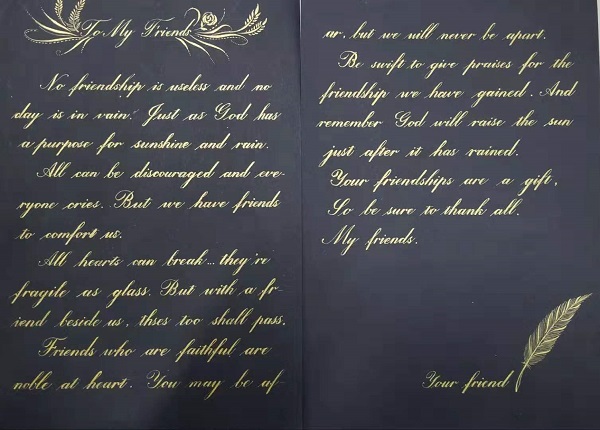 To My Friends
No friendship is useless and no
day is in vain. Just as God has
a purpose for sunshine and rain.
All can be discouraged and eve-
ryone cries. But we have friends
to comfort us.
All hearts can break... they're
fragile as glass. But with a fr-
iend beside us, thses too shall pass.
Friends who are faithful are
noble at heart. You may be af-
ar, but we will never be apart.
Be swift to give praises for the
friendship we have gained. And
remember God will raise the sun
just after it has rained.
Your friendships are a gift,
So be sure to thank all.
My friends.
Your friend